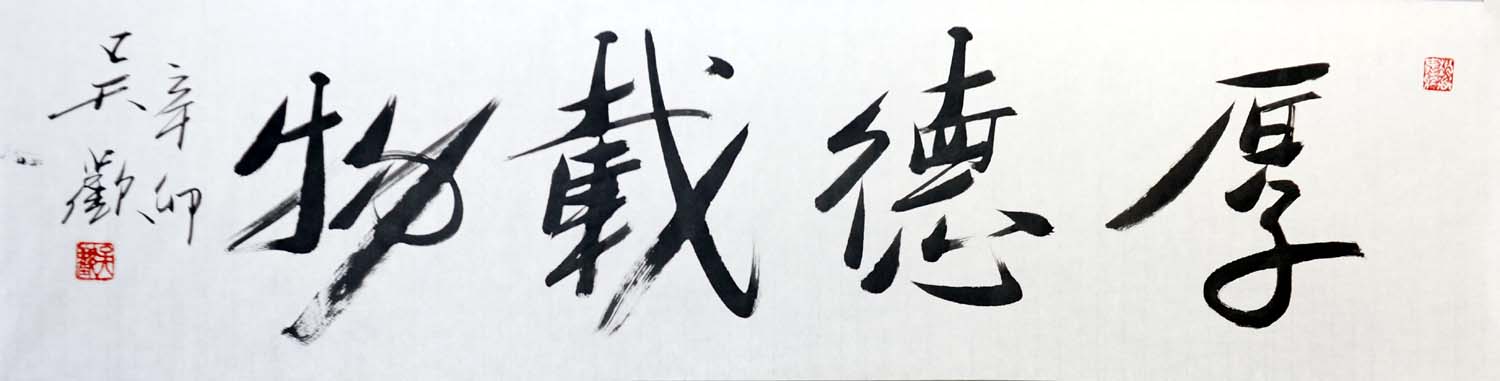 厚德載物
辛卯
吴歡